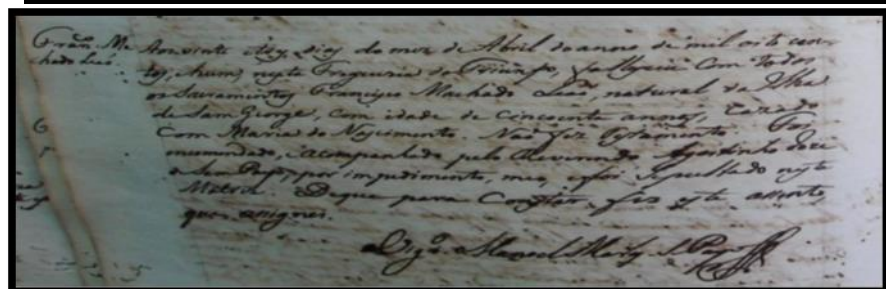 Fran.co Ma
chado Leal
Aos vinte e tres dias do mez de Abril do anno de mil oito cen-
tos, e hum, nesta Freguezia do Triunfo, faleceu Com todos
os Sacramentos Francisco Machado Leal, natural da Ilha
de Sam George, com idade de Cincoenta annos, Cazado
Com Maria do Nascimento. Naõ fez testamento. Foi
encomendado, e acompanhado pelo Reverendo Agostinho
por impedimento, meo, e foi Sepultado nesta
Matriz. Deque para Constar fiz este assento,
que assignei.
Vigr.o Manoel